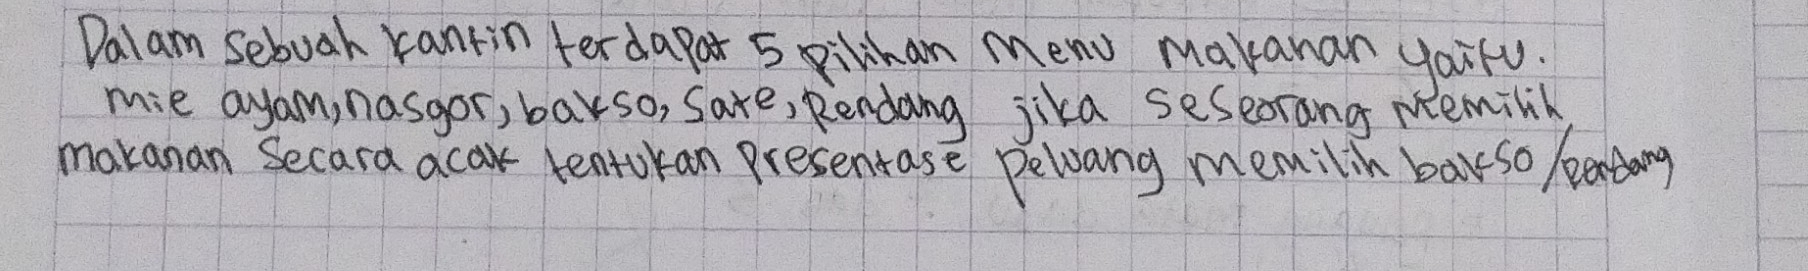 Dalam sebuah kantin terdapat 5 pilihan menu makanan yaitu.
mie ayam, nasgor, bakso, sate, Rendang jika seseorang memilih
makanan secara acak tentukan presentase peluang memilih bakso/rendang